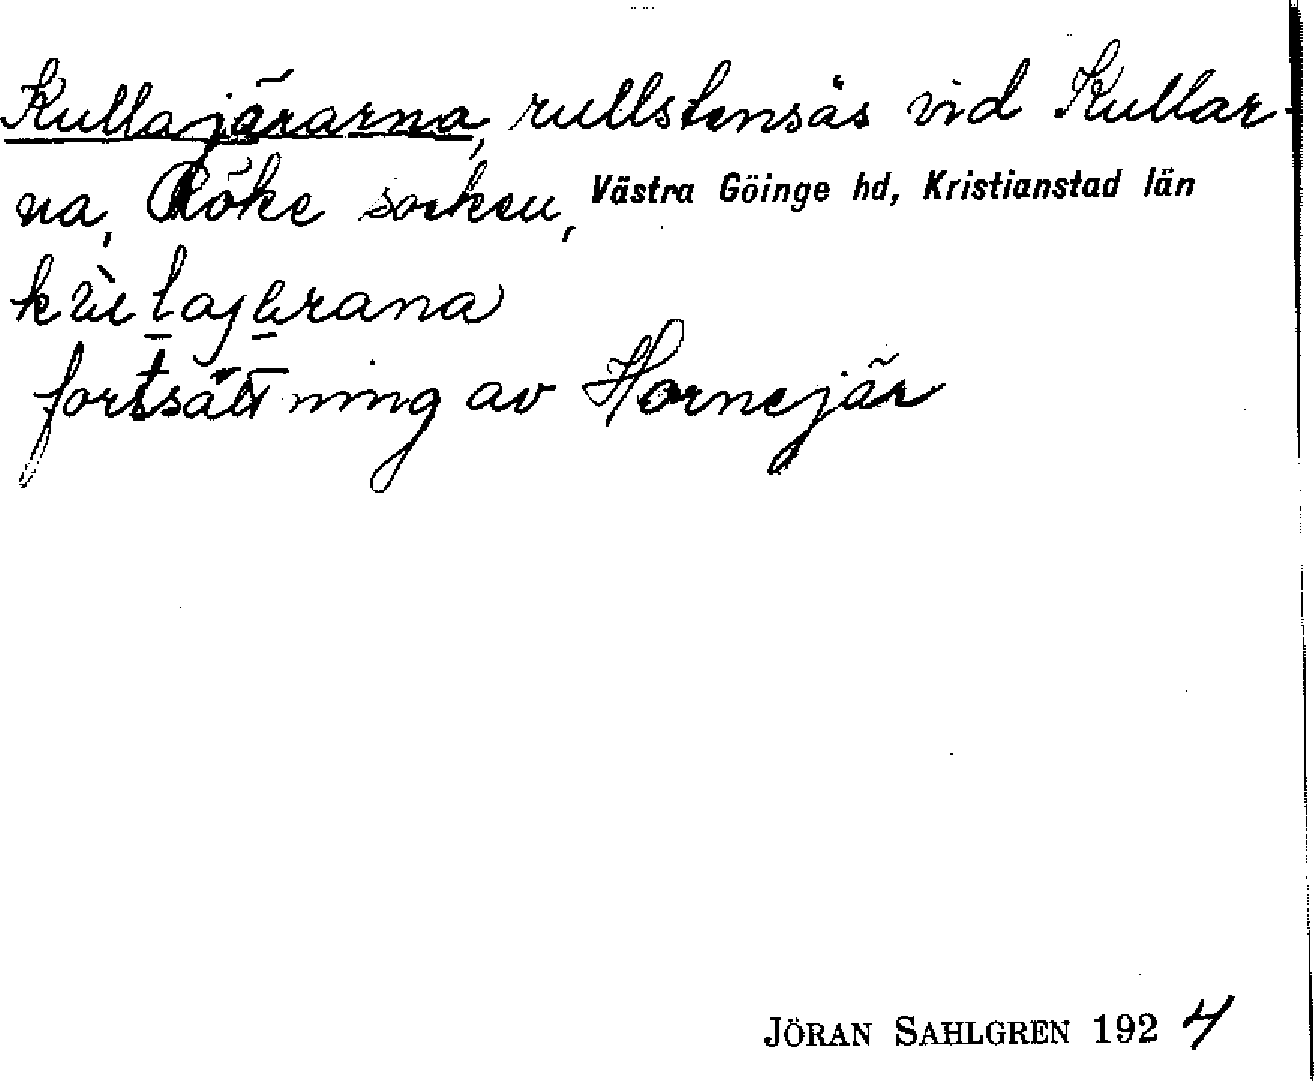 Kullajärarna, rullstensås vid Kullar-
na, Röke socken, Västra Göinge hd, Kristianstad län
fortsättning av Hornejär
JÖRAN SAHLGREN 1924